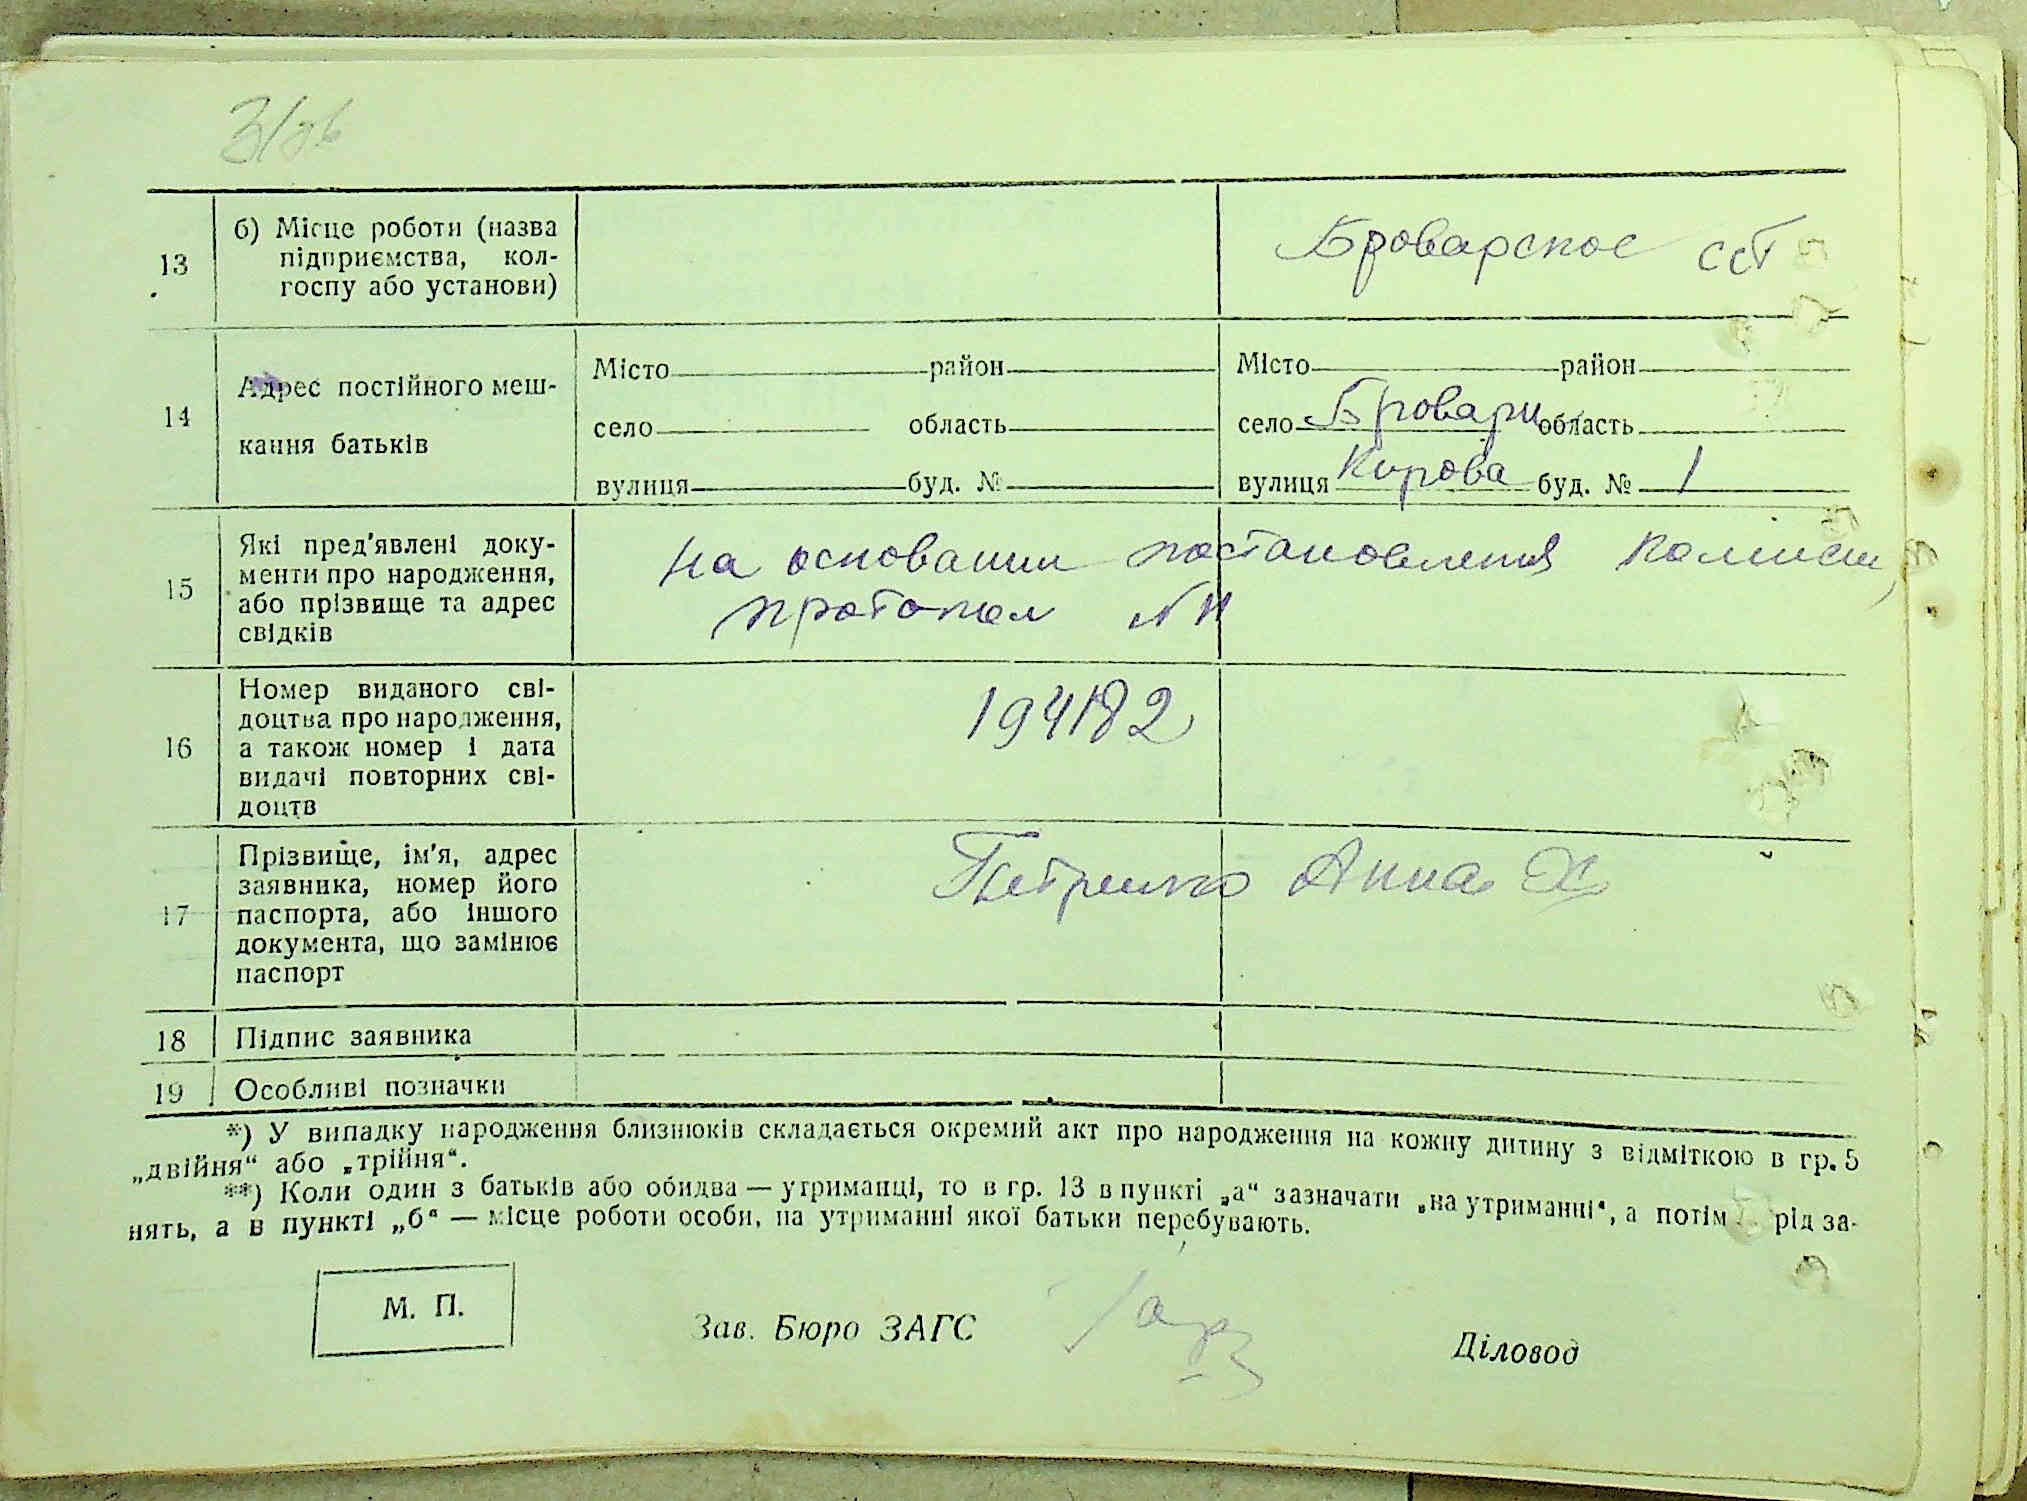 13
б) Місце роботи (назва
підприємства, кол-
госпу або установи)
Броварское ССТ
14
Адрес постійного меш-
кання батьків
Місто район
село область
вулиця буд. №
Місто район
село Бровари область
вулиця Кирова буд. № 1
15
Які пред'явлені доку-
менти про народження,
або прізвище та адрес
свідків
На основании постановления комиссии,
протокол №
16
Номер виданого сві-
доцтва про народження,
а також номер і дата
видачі повторних сві-
доцтв
194182
17
Прізвище, ім'я, адрес
заявника, номер його
паспорта, або іншого
документа, що замінює
паспорт
Петренко Анна Х
18
Підпис заявника
19
Особливі позначки
*) У випадку народження близнюків складається окремий акт про народження на кожну дитину з відміткою в гр. 5
„двійня“ або „трійня“.
**) Коли один з батьків або обидва — утриманці, то в гр. 13 в пункті „а“ зазначати „на утриманні“, а потім рід за-
нять, а в пункті „б“ — місце роботи особи, на утриманні якої батьки перебувають.
М. П.
Зав. Бюро ЗАГС
Діловод